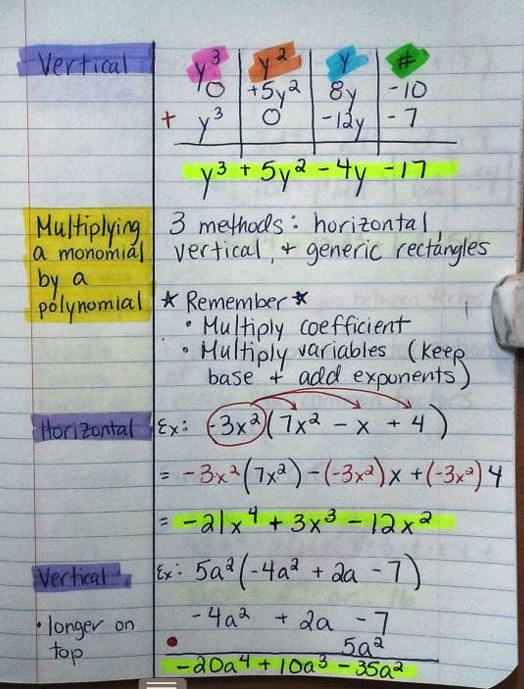 Vertical
y³ y² y #
0 +5y² 8y -10
+ y³ 0 -12y -7
y³ + 5y² - 4y - 17
Multiplying a monomial by a polynomial
3 methods: horizontal,
vertical, + generic rectangles
★ Remember ★
• Multiply coefficient
• Multiply variables (keep
base + add exponents)
Horizontal
Ex: -3x²(7x² - x + 4)
= -3x²(7x²) - (-3x²)x + (-3x²)4
= -21x⁴ + 3x³ - 12x²
Vertical
• longer on top
Ex: 5a²(-4a² + 2a - 7)
-4a² + 2a - 7
• 5a²
-20a⁴ + 10a³ - 35a²